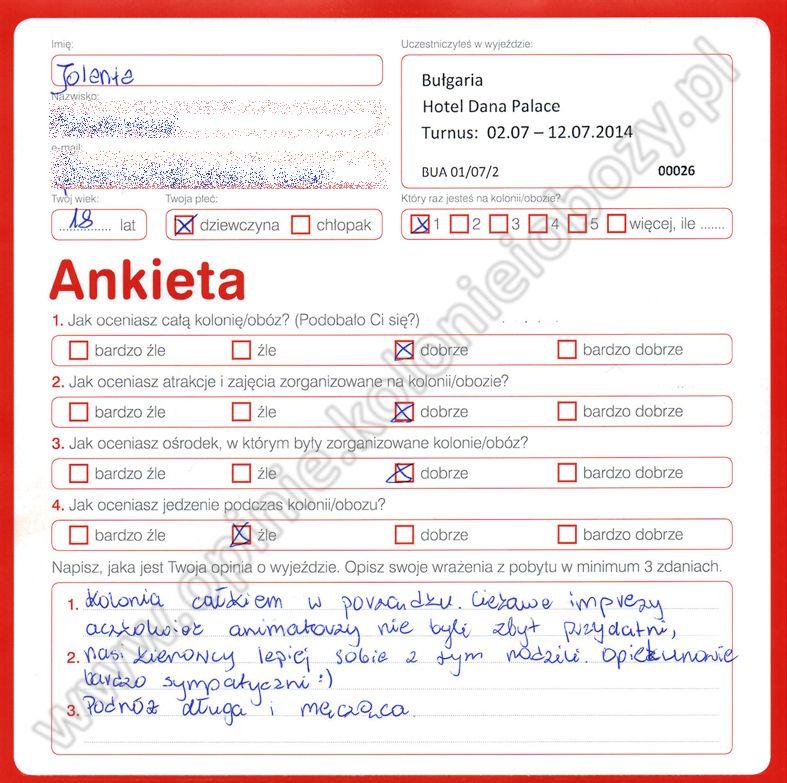 Imię:
Jolanta
Nazwisko:
e-mail:
Twój wiek:
18 lat
Twoja płeć:
dziewczyna chłopak
Uczestniczyłeś w wyjeździe:
Bułgaria
Hotel Dana Palace
Turnus: 02.07 – 12.07.2014
BUA 01/07/2 00026
Który raz jesteś na kolonii/obozie?
1 2 3 4 5 więcej, ile .......
Ankieta
1. Jak oceniasz całą kolonię/obóz? (Podobało Ci się?)
bardzo źle źle dobrze bardzo dobrze
2. Jak oceniasz atrakcje i zajęcia zorganizowane na kolonii/obozie?
bardzo źle źle dobrze bardzo dobrze
3. Jak oceniasz ośrodek, w którym były zorganizowane kolonie/obóz?
bardzo źle źle dobrze bardzo dobrze
4. Jak oceniasz jedzenie podczas kolonii/obozu?
bardzo źle źle dobrze bardzo dobrze
Napisz, jaka jest Twoja opinia o wyjeździe. Opisz swoje wrażenia z pobytu w minimum 3 zdaniach.
1. Kolonia całkiem w porządku. Ciekawe imprezy
aczkolwiek animatorzy nie byli zbyt przydatni,
2. nasi kierowcy lepiej sobie z tym radzili. Opiekunowie
bardzo sympatyczni :)
3. Podróż długa i męcząca.
www.opinie.kolonieiobozy.pl